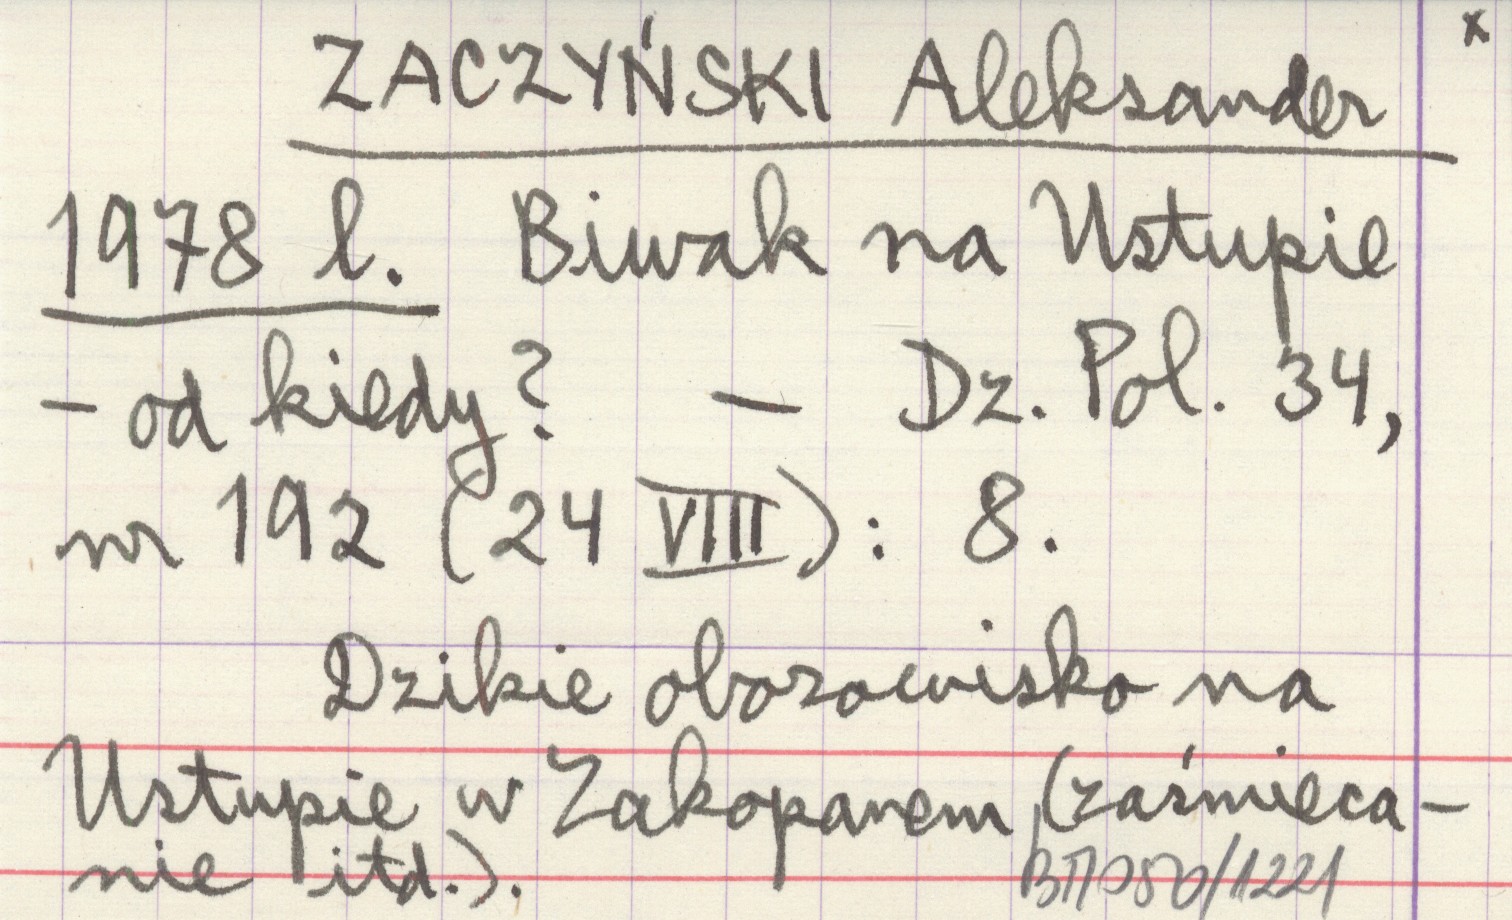 x
ZACZYŃSKI Aleksander
1978 l. Biwak na Ustupie
- od kiedy? - Dz. Pol. 34,
nr 192 (24 VIII): 8.
Dzikie obozowisko na
Ustupie w Zakopanem (zaśmieca-
nie itd.).